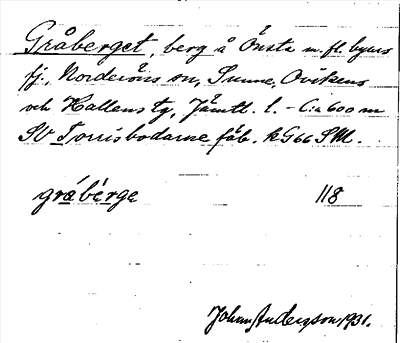 Gråberget, berg å Önsta m. fl. byars
fj., Norderöns sn, Sunne, Ovikens
och Hallens tg, Jämtl. l. - C:a 600 m
SV Torrisbodarne fäb. k G 66 SM.
gràbèrge 118
Johan Anderzson 1931.